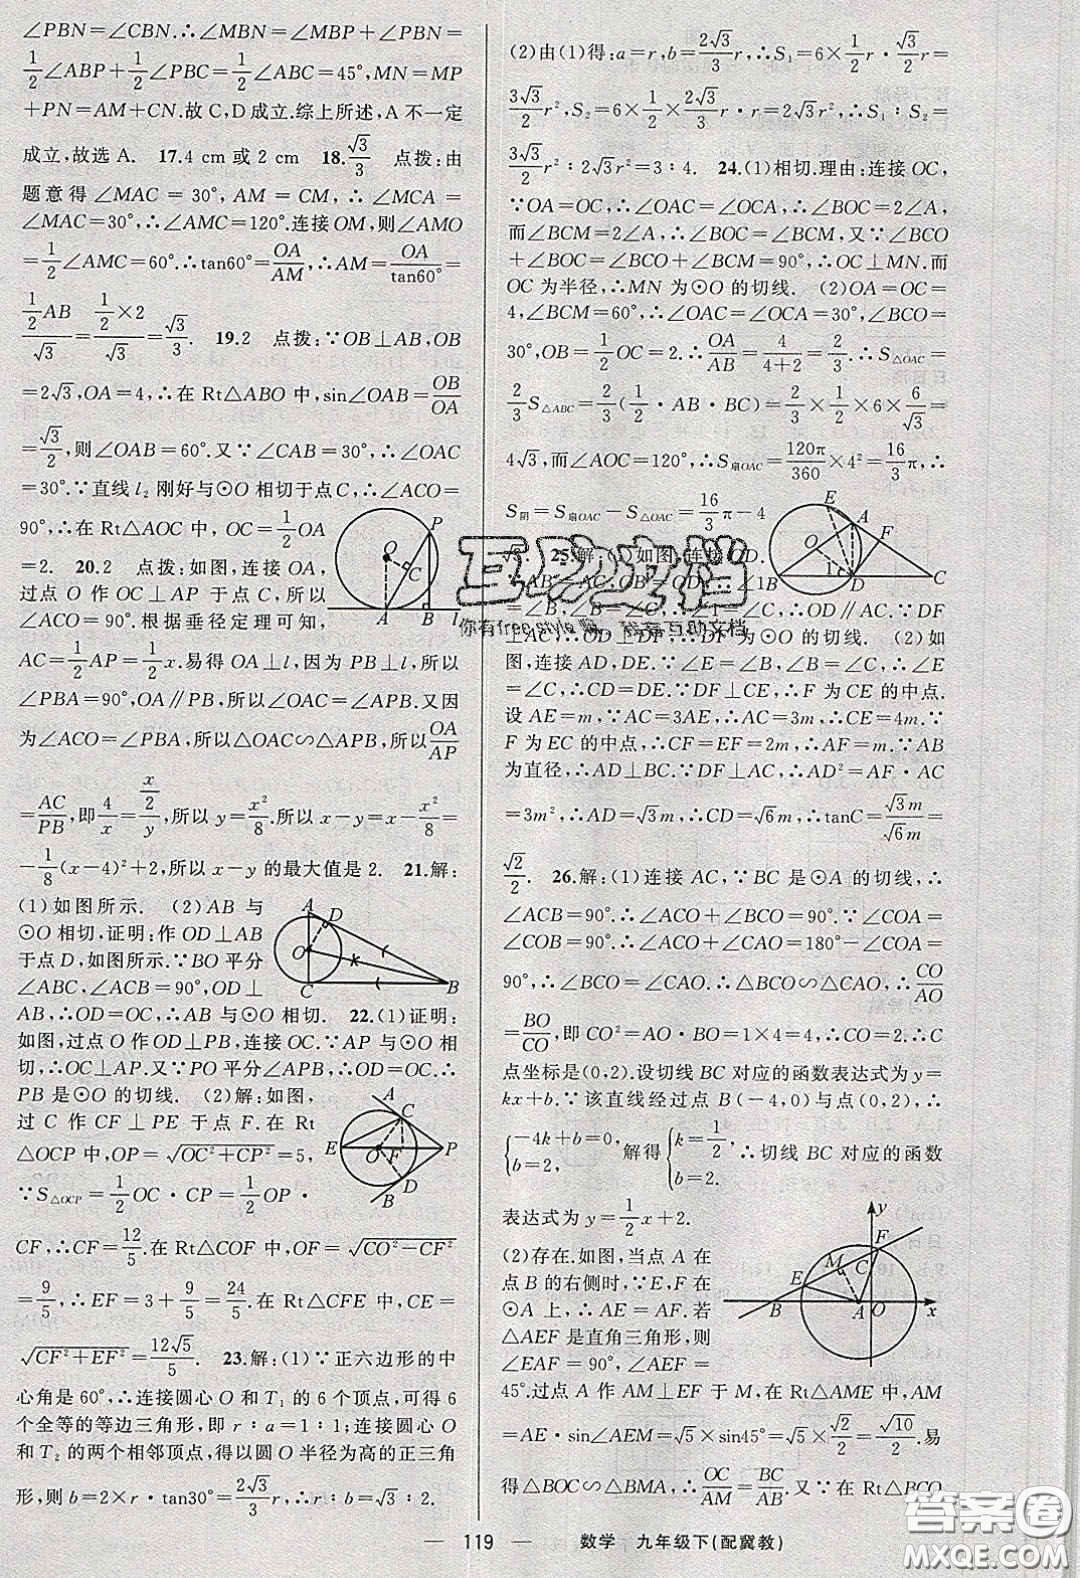 ∠PBN=∠CBN.∴∠MBN=∠MBP+∠PBN=
1/2∠ABP+1/2∠PBC=1/2∠ABC=45°,MN=MP
+PN=AM+CN.故 C,D 成立.综上所述,A 不一定
成立,故选 A. 17.4 cm 或 2 cm 18.√3/3 点拨:由
题意得∠MAC=30°,AM=CM,∴∠MCA=
∠MAC=30°,∴∠AMC=120°.连接 OM,则∠AMO
=1/2∠AMC=60°.∴tan60°=OA/AM,∴AM=OA/tan60°=
(1/2AB)/√3=(1/2×2)/√3=√3/3. 19.2 点拨:∵OB⊥AB,OB
=2√3,OA=4,∴在 Rt△ABO 中,sin∠OAB=OB/OA
=√3/2,则∠OAB=60°.又∵∠CAB=30°,∴∠OAC
=30°.∵直线 l₂ 刚好与⊙O 相切于点C,∴∠ACO=
90°,∴在 Rt△AOC 中,OC=1/2OA
=2. 20.2 点拨:如图,连接 OA,
过点 O 作 OC⊥AP 于点 C,所以
∠ACO=90°.根据垂径定理可知,
AC=1/2AP=1/2x.易得 OA⊥l,因为 PB⊥l,所以
∠PBA=90°,OA∥PB,所以∠OAC=∠APB.又因
为∠ACO=∠PBA,所以△OAC∽△APB,所以OA/AP
=AC/PB,即4/x=(x/2)/y,所以 y=x²/8.所以 x-y=x-x²/8=
-1/8(x-4)²+2,所以 x-y 的最大值是 2. 21.解:
(1)如图所示. (2)AB 与
⊙O 相切.证明:作 OD⊥AB
于点 D,如图所示.∵BO 平分
∠ABC,∠ACB=90°,OD⊥
AB,∴OD=OC,∴AB 与⊙O 相切. 22.(1)证明:
如图,过点 O 作 OD⊥PB,连接 OC.∵AP 与⊙O 相
切,∴OC⊥AP.又∵PO 平分∠APC,∴OD=OC.∴
PB 是⊙O 的切线. (2)解:如图,
过 C 作 CF⊥PE 于点 F.在 Rt
△OCP 中,OP=√(OC²+CP²)=5,
∵S△OCP=1/2OC·CP=1/2OP·
CF,∴CF=12/5.在 Rt△COF 中,OF=√(CO²-CF²)
=9/5,∴EF=3+9/5=24/5.在 Rt△CFE 中,CE=
√(CF²+EF²)=12√5/5. 23.解:(1)∵正六边形的中
心角是 60°,∴连接圆心 O 和 T₁ 的 6 个顶点,可得 6
个全等的等边三角形,即 r∶a=1∶1;连接圆心 O
和 T₂ 的两个相邻顶点,得以圆 O 半径为高的正三角
形,则 b=2×r·tan30°=2√3/3r,∴r∶b=√3∶2.
(2)由(1)得:a=r,b=2√3/3r,∴S₁=6×1/2r·√3/2r=
3√3/2r²,S₂=6×1/2×2√3/3r·r=2√3r²,∴S₁∶S₂=
3√3/2r²∶2√3r²=3∶4. 24.(1)相切.理由:连接 OC,
∵OA=OC,∴∠OAC=∠OCA,∴∠BOC=2∠A,
而∠BCM=2∠A,∴∠BOC=∠BCM,又∵∠BCO
+∠BOC=∠BCO+∠BCM=90°,∴OC⊥MN.而
OC 为半径,∴MN 为⊙O的切线. (2)OA=OC=
4,∠BCM=60°,∴∠OAC=∠OCA=30°,∠BCO=
30°,OB=1/2OC=2.∴OA/AB=4/(4+2)=2/3.∴S△OAC=
2/3S△ABC=2/3(1/2·AB·BC)=2/3×1/2×6×6/√3=
4√3.而∠AOC=120°,∴S扇OAC=120π/360×4²=16/3π,∴
S阴=S扇OAC-S△OAC=16/3π-4
√3. 25.解:(1)如图,连接 OD.
∵AB=AC,OB=OD,∴∠1B
=∠B,∠B=∠C,∴OD∥AC.又∵DF
⊥AC,∴OD⊥DF,∴DF 为⊙O 的切线. (2)如
图,连接 AD,DE.∵∠E=∠B,∠B=∠C,∴∠E
=∠C,∴CD=DE.∵DF⊥CE,∴F 为 CE 的中点.
设 AE=m,∵AC=3AE,∴AC=3m,∴CE=4m.∵
F 为 EC 的中点,∴CF=EF=2m,∴AF=m.∵AB
为直径,∴AD⊥BC.∵DF⊥AC,∴AD²=AF·AC
=3m²,∴AD=√3m,∴CD=√6m,∴tanC=√3m/√6m=
√2/2. 26.解:(1)连接 AC,∵BC 是⊙A 的切线,∴
∠ACB=90°.∴∠ACO+∠BCO=90°.∵∠COA=
∠COB=90°,∴∠ACO+∠CAO=180°-∠COA=
90°,∴∠BCO=∠CAO.∴△BCO∽△CAO,∴CO/AO
=BO/CO,即 CO²=AO·BO=1×4=4,∴CO=2.∴C
点坐标是(0,2).设切线 BC 对应的函数表达式为 y=
kx+b.∵该直线经过点 B(-4,0)与点(0,2),∴
{-4k+b=0, b=2, 解得{k=1/2, b=2, ∴切线 BC 对应的函数
表达式为 y=1/2x+2.
(2)存在.如图,当点 A 在
点 B 的右侧时,∵E,F 在
⊙A 上,∴AE=AF.若
△AEF 是直角三角形,则
∠EAF=90°,∠AEF=
45°.过点 A 作 AM⊥EF 于 M,在 Rt△AME 中,AM
=AE·sin∠AEM=√5×sin45°=√5×√2/2=√10/2.易
得△BOC∽△BMA,∴OC/AM=BC/AB.又∵Rt△BCO
— 119 — 数学 九年级下(配冀教)
互助文档
答案圈